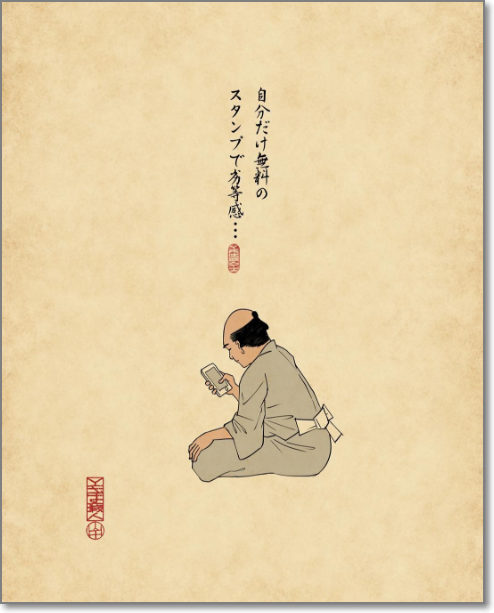 自分だけ無料の
スタンプで劣等感…